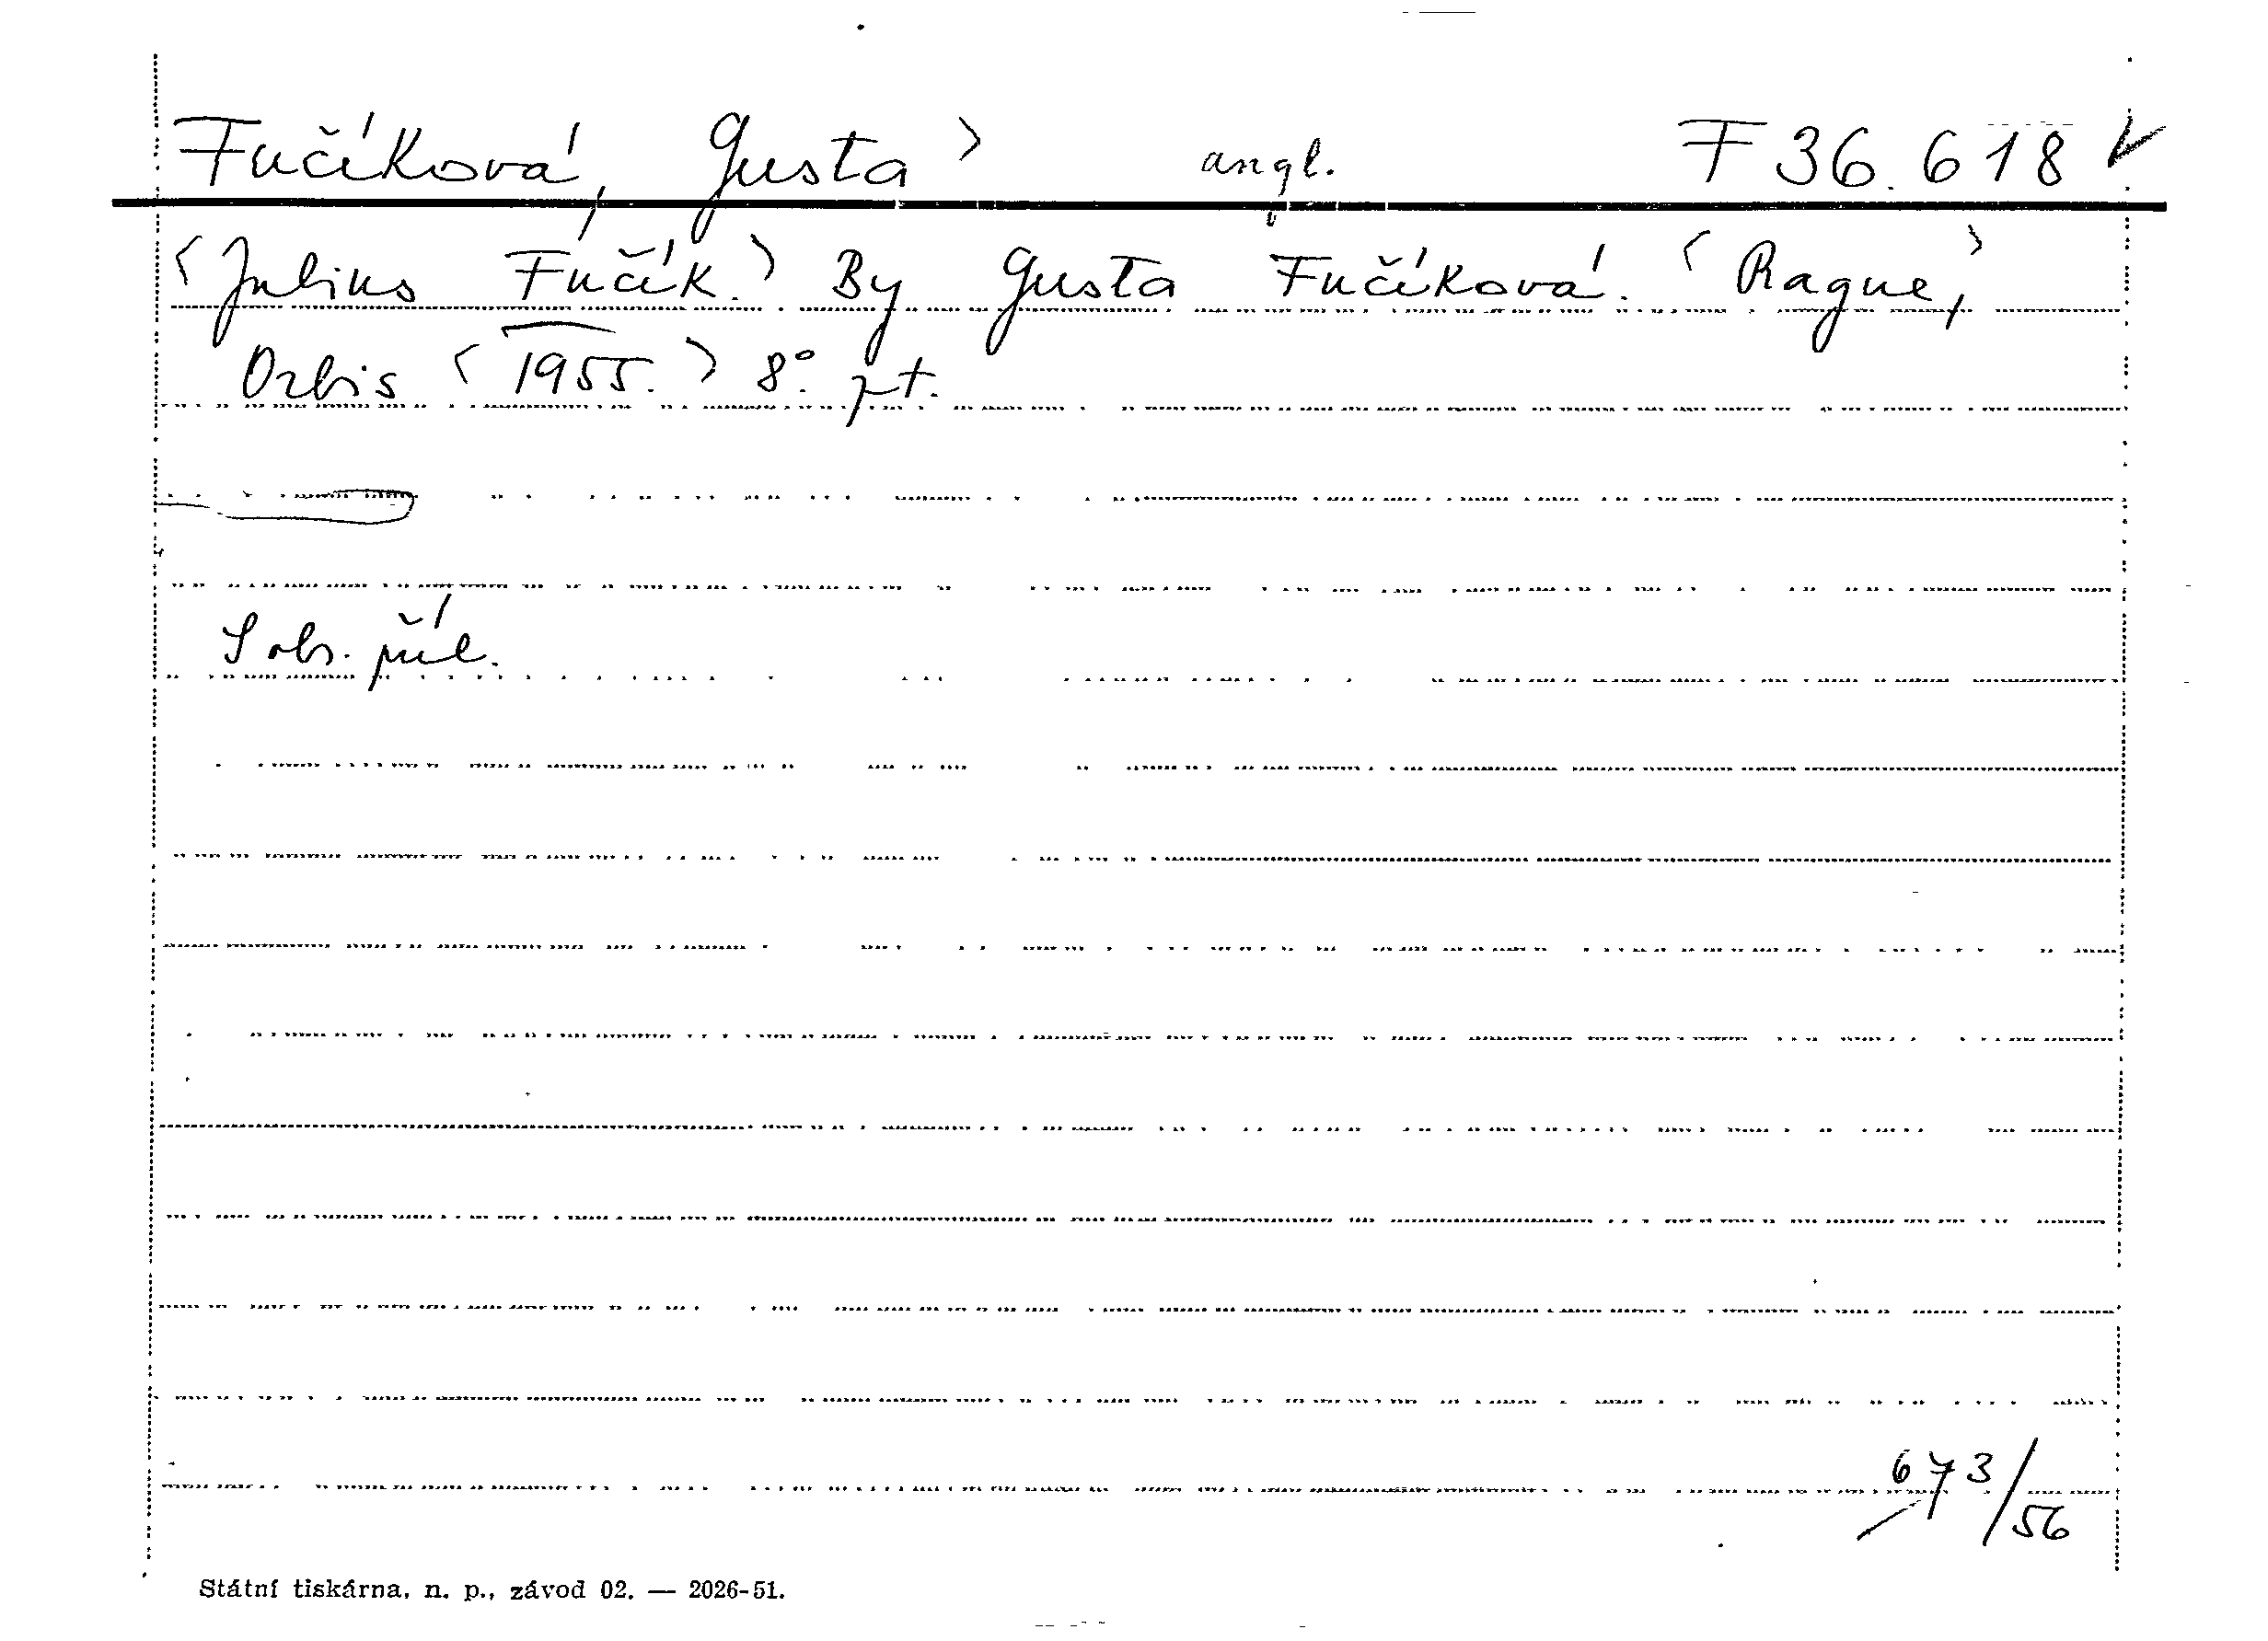 Fučíková, Gusta> angl. F 36.618 ✓
<Julius Fučík.> By Gusta Fučíková. <Prague,>
Orbis <1955.> 8°. pt.
S obr. příl.
673/56
Státní tiskárna, n. p., závod 02. — 2026-51.